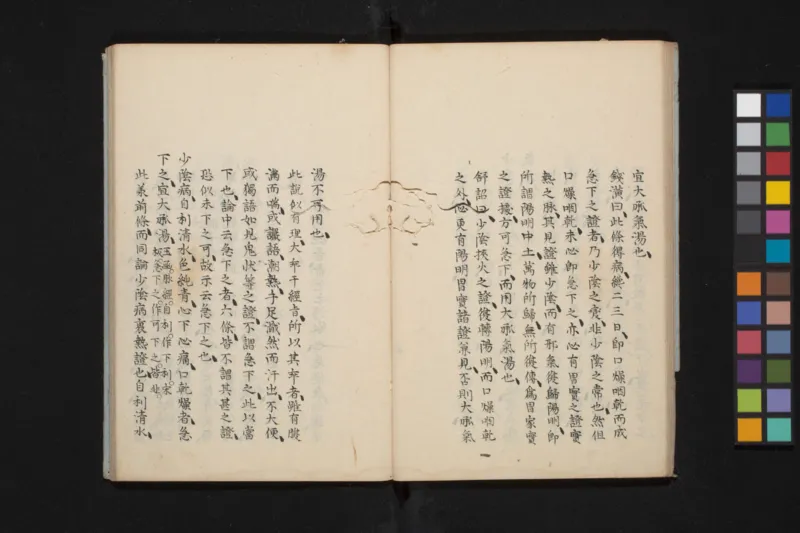 宜大承氣湯也
錢潢曰此條得病纔二三日即口燥咽乾而成
急下之證者乃少陰之變非少陰之常也然但
口燥咽乾未必即急下之亦必有胃實之證實
熱之脉其見證雖少陰而有邪氣復歸陽明即
所謂陽明中土萬物所歸無所復傳爲胃家實
之證據方可急下而用大承氣湯也
舒詔曰少陰挾火之證復轉陽明而口燥咽乾
之外必更有陽明胃實諸證兼見否則大承氣
湯不可用也
此說似有理大率干經旨所以其卒者雖有腹
滿而喘或譫語潮熱手足濈然而汗出不大便
或獨語如見鬼狀等之證不謂急下之此以當
下也論中云急下之者六條皆不謂其甚之證
恐似未下之可故示云急下之也
少陰病自利清水色純青心下必痛口乾燥者急
下之宜大承氣湯玉函脉經自利作下利宋
板急下之作可下之皆非
此承前條而同論少陰病裏熱證也自利清水